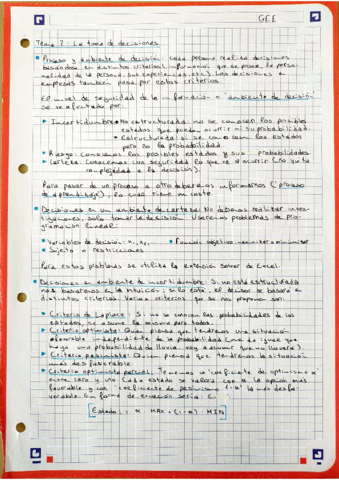 GEE
Tema 7 - La toma de decisiones
• Proceso y ambiente de decisión: cada persona realiza decisiones
basándose en distintos criterios (información que se posee, la perso-
nalidad de la persona, sus experiencias, etc). Las decisiones en
empresas también pasa por estos criterios.
El nivel de seguridad de la información o "ambiente de decisión"
se ve afectado por:
• Incertidumbre: No estructurada: no se conocen los posibles
estados que pueden ocurrir ni su probabilidad.
Estructurada: se conocen los estados
pero no la probabilidad
• Riesgo: Conocemos los posibles estados y sus probabilidades
• Certeza: Conocemos con seguridad lo que va a ocurrir (no quita
complejidad a la decisión).
Para pasar de un proceso a otro debaremos informarnos ("proceso
de aprendizaje"), lo cual tiene un coste.
• Decisiones en un ambiente de certeza: No debamos realizar inves-
tigaciones, solo tomar la decisión. Usaremos problemas de pro-
gramación lineal:
• Variables de decisión: x₁, x₂, • Función objetivo: maximizar o minimizar
• Sujeto a restricciones
Para estos problemas se utiliza la extensión solver de Excel.
• Decisiones en ambiente de incertidumbre: Si no está estructurada
nos basaremos en la intuición; si lo está, el decisor se basará en
distintos criterios. Varios criterios que se nos proponen son:
• Criterio de Laplace: Si no se conocen las probabilidades de los
estados, se asume la misma para todos.
• Criterio optimista: Quien piensa que tendremos una situación
favorable independiente de la probabilidad (me da igual que
haya una probabilidad de lluvia, voy a asumir que no lloverá).
• Criterio pesimista: Quien piensa que tendremos la situación
más desfavorable.
• Criterio optimista parcial: Tenemos un "coeficiente de optimismo α"
entre cero y uno. Cada estado se valora con α la opción más
favorable y con "coeficiente de pesimismo (1-α)" la más desfa-
vorable. En forma de ecuación sería:
Estado₁: α · MAX + (1-α) · MIN